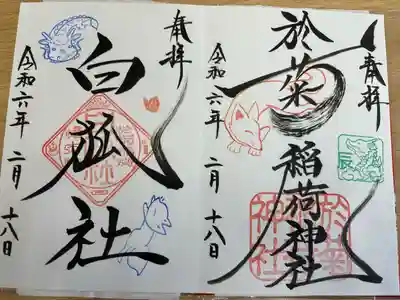 奉拝
於菜稲荷神社
令和六年二月十八日
辰
於菜
稲荷
神社
奉拝
白狐社
令和六年二月十八日